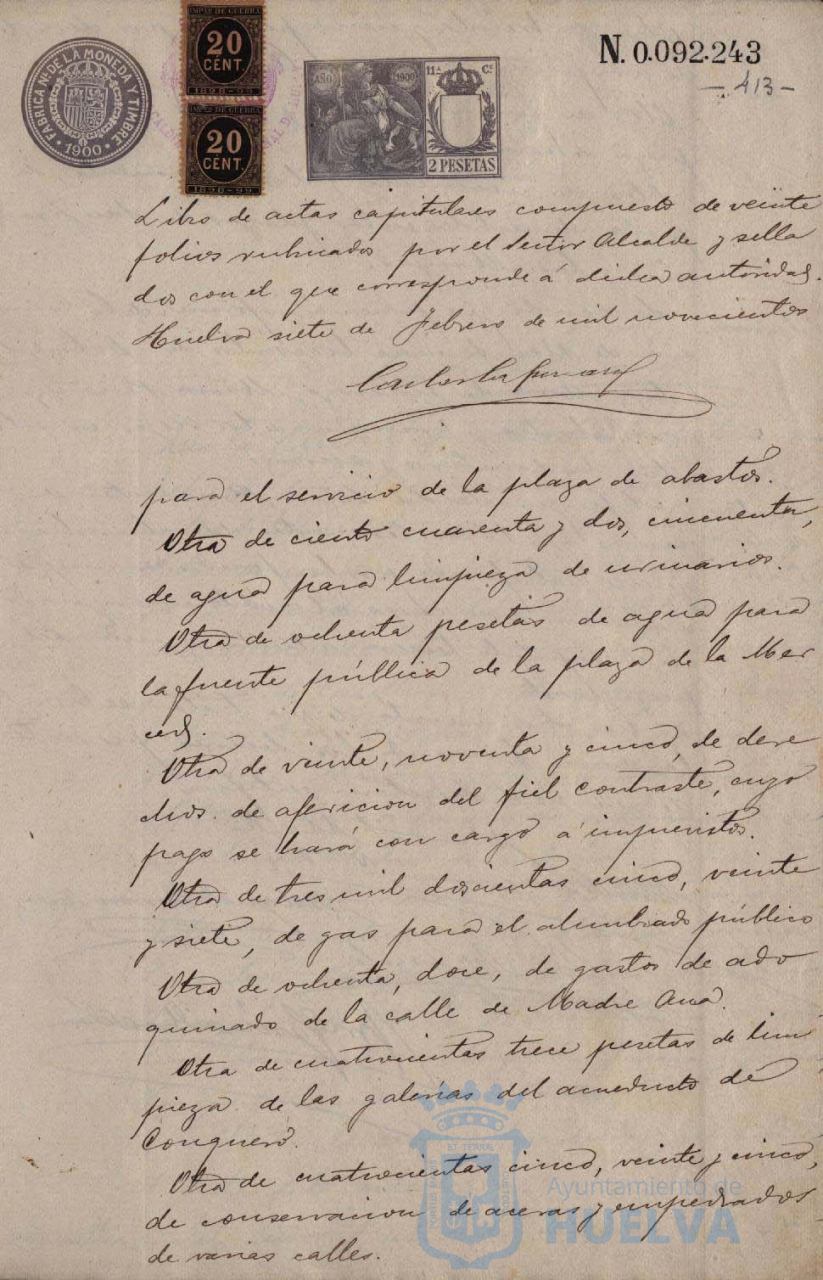 FABRICA Nᴸ DE LA MONEDA Y TIMBRE
1900
IMPᵀᴼ DE GUERRA
20
CENT.
1898-99
IMPᵀᴼ DE GUERRA
20
CENT.
1898-99
AÑO 1900
11ª Cᴱ
2 PESETAS
N. 0.092.243
- 413 -
Libro de actas capitulares compuesto de veinte
folios rubricados por el señor Alcalde y sella
dos con el que corresponde á dicha autoridad.
Huelva siete de Febrero de mil novecientos
para el servicio de la plaza de abastos.
Otra de ciento cuarenta y dos, cincuenta,
de agua para limpieza de urinarios.
Otra de ochenta pesetas de agua para
la fuente pública de la plaza de la Mer
ced.
Otra de veinte, noventa y cinco, de dere
chos de afericion del fiel contraste, cuyo
pago se hará con cargo á imprevistos.
Otra de tres mil doscientas cinco, veinte
y siete, de gas para el alumbrado público
Otra de ochenta, doce, de gastos de ado
quinado de la calle de Madre Ana.
Otra de cuatrocientas trece pesetas de lim
pieza de las galerias del acueducto de
Conquero.
Otra de cuatrocientas cinco, veinte y cinco,
de conservacion de aceras y empedrados
de varias calles.
Ayuntamiento de
HUELVA